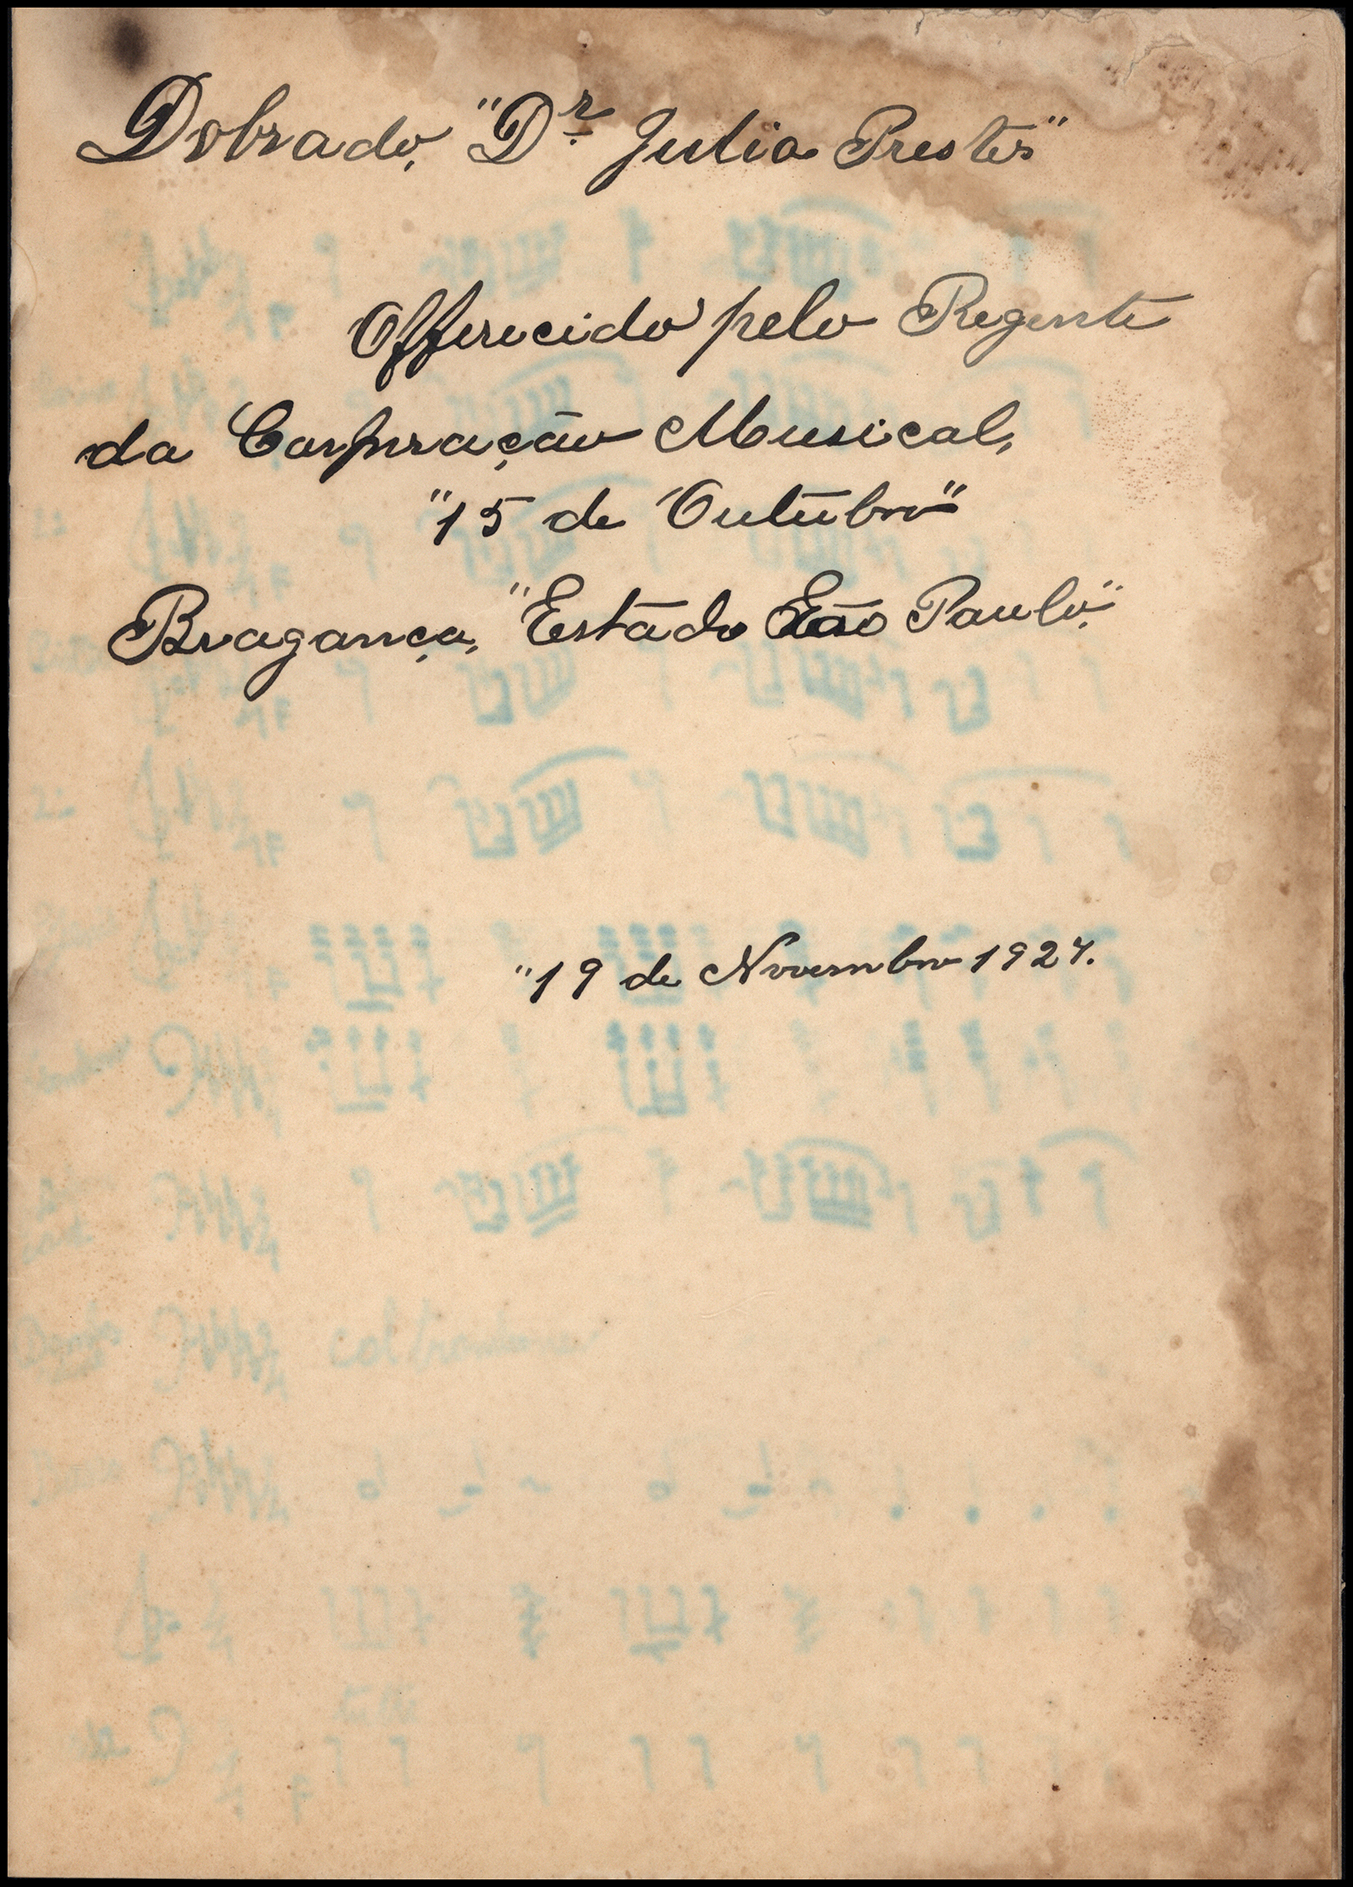 Dobrado, "Dr Julio Prestes"
Offerecido pelo Regente
da Corporação Musical,
"15 de Outubro"
Bragança, "Estado São Paulo".
"19 de Novembro 1927.